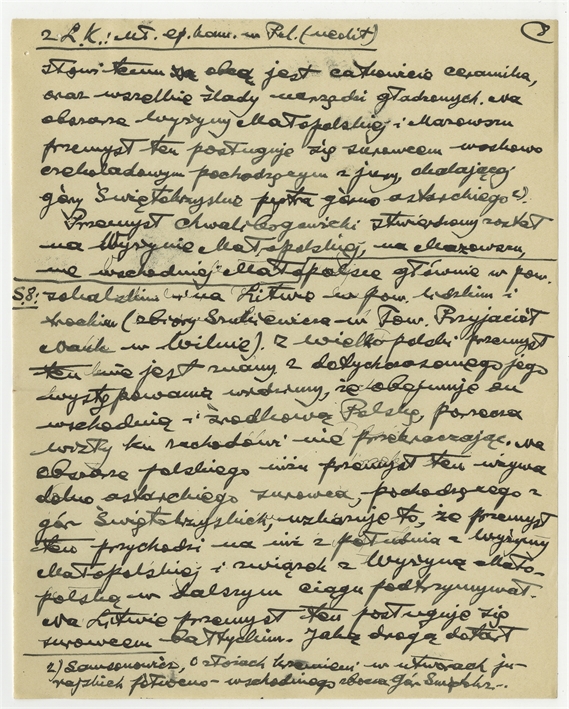 8
z L.K.: Mł. ep. kam. w Pol. (nedit)
słowi temu obcą jest całkowicie ceramika,
oraz wszelkie ślady narzędzi gładzonych. Na
obszarze Wyżyny Małopolskiej i Mazowsza
przemysł ten posługuje się surowcem woskowo
czekoladowym pochodzącym z jury, okalającej
góry Świętokrzyskie piętra górno astarckiego 2).
Przemysł chwalibogowicki stwierdzony został
na Wyżynie Małopolskiej, na Mazowszu,
we wschodniej Małopolsce głównie w pow.
S.8: sokalskim i na Litwie w pow. lidzkim i
trockim (zbiory Szukiewicza w Tow. Przyjaciół
Nauk w Wilnie). Z wielkopolski przemysł
ten nie jest znany z dotychczasowego jego
występowania widzimy, że obejmuje on
wschodnią i środkową Polskę, poza
wisły ku zachodowi nie przekraczając. Na
obszarze polskiego niżu przemysł ten używa
dolno astarckiego surowca, pochodzącego z
gór Świętokrzyskich, wskazuje to, że przemysł
ten przychodzi na niż z południa z Wyżyny
Małopolskiej i związek z Wyżyną Mało-
polską w dalszym ciągu podtrzymywał.
Na Litwie przemysł ten posługuje się
surowcem bałtyckim. Jaką drogą dotarł
2) Samsonowicz, O złożach krzemieni w utworach ju-
rajskich północno-wschodniego zbocza Gór Świętokrz...